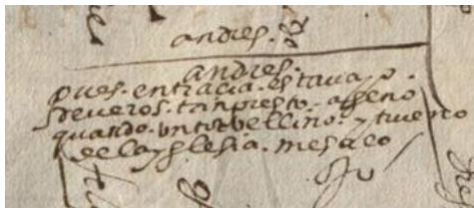 andres.
andres.
pues. entrada. estava yo.
de veros. tan presto. ageno
quando. un torvellino. y trueno
de la yglesia. me saco